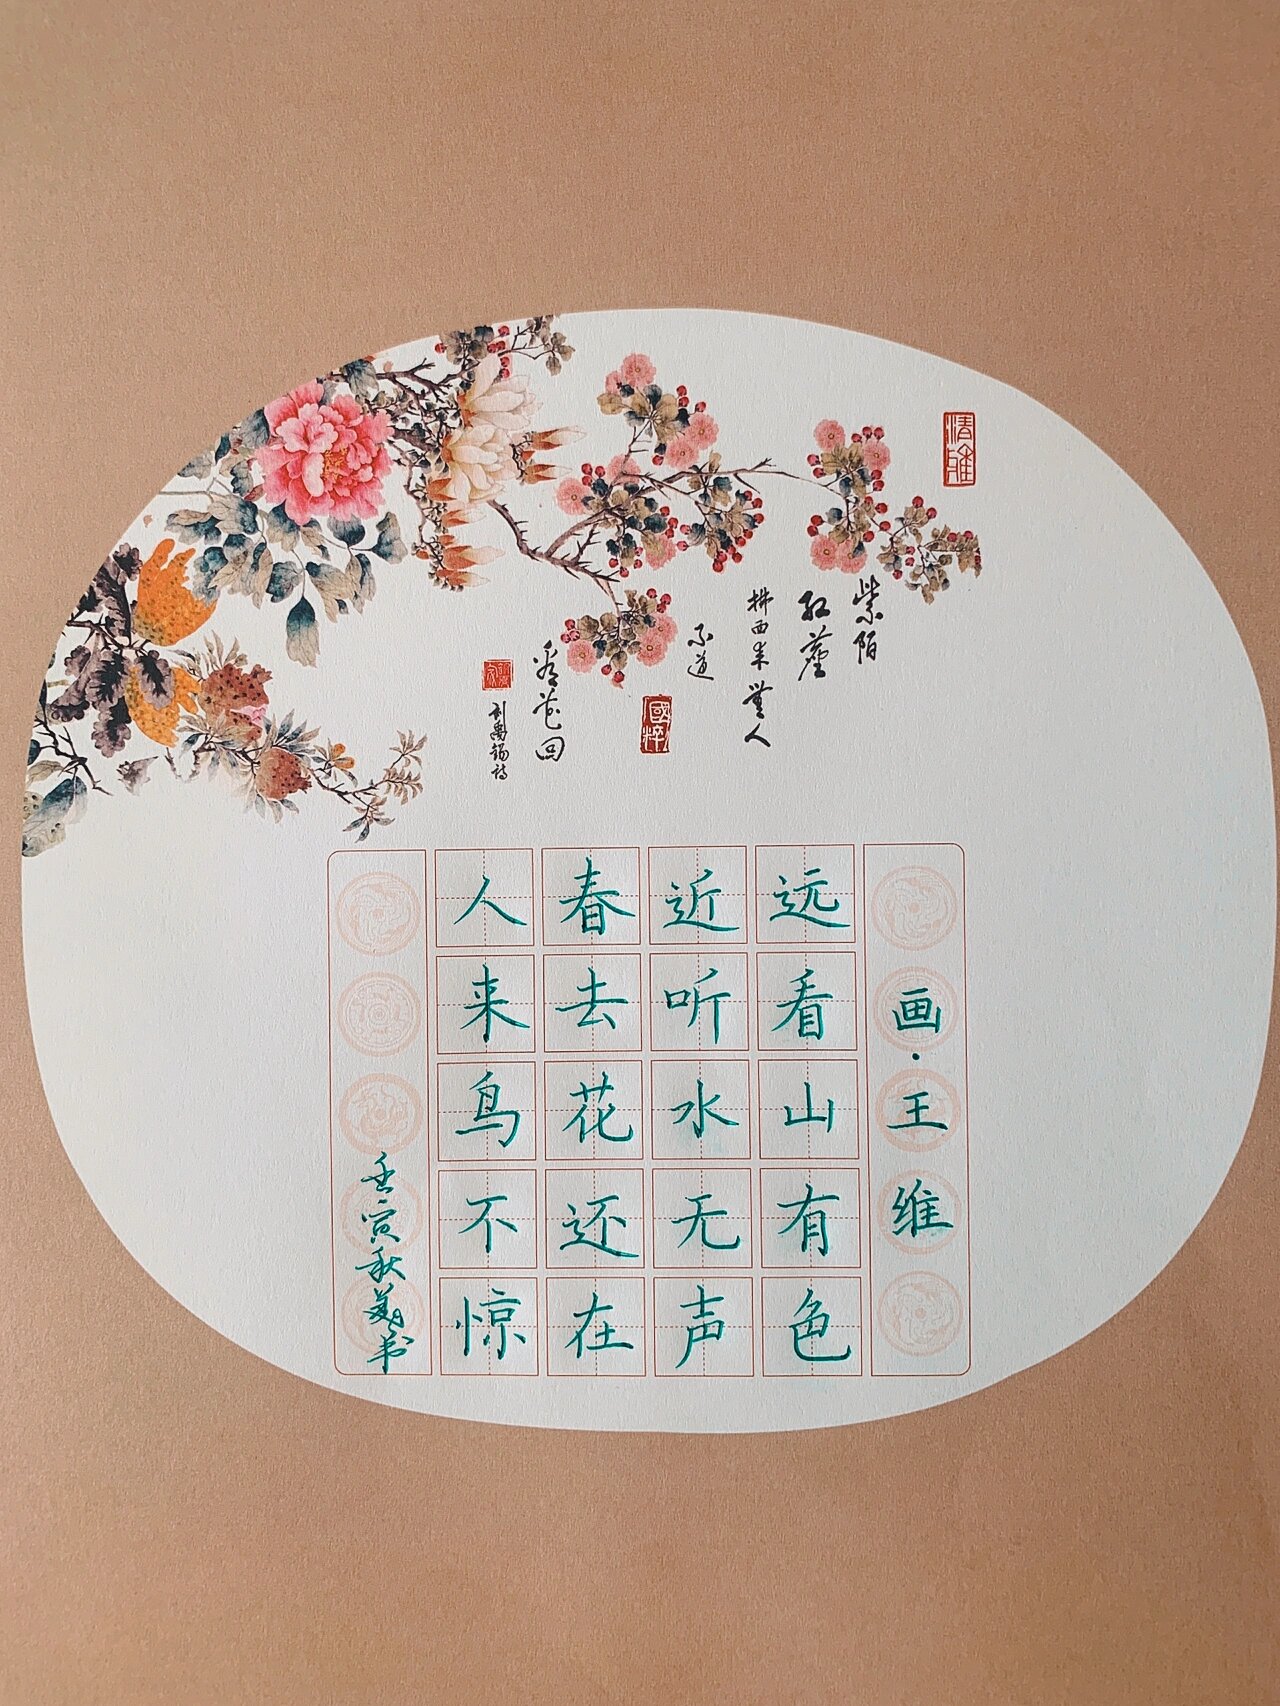 清雅
紫陌
紅塵
拂面来無人
不道
國粹
看花回
刘禹锡诗
画·王维
远看山有色
近听水无声
春去花还在
人来鸟不惊
壬寅秋书